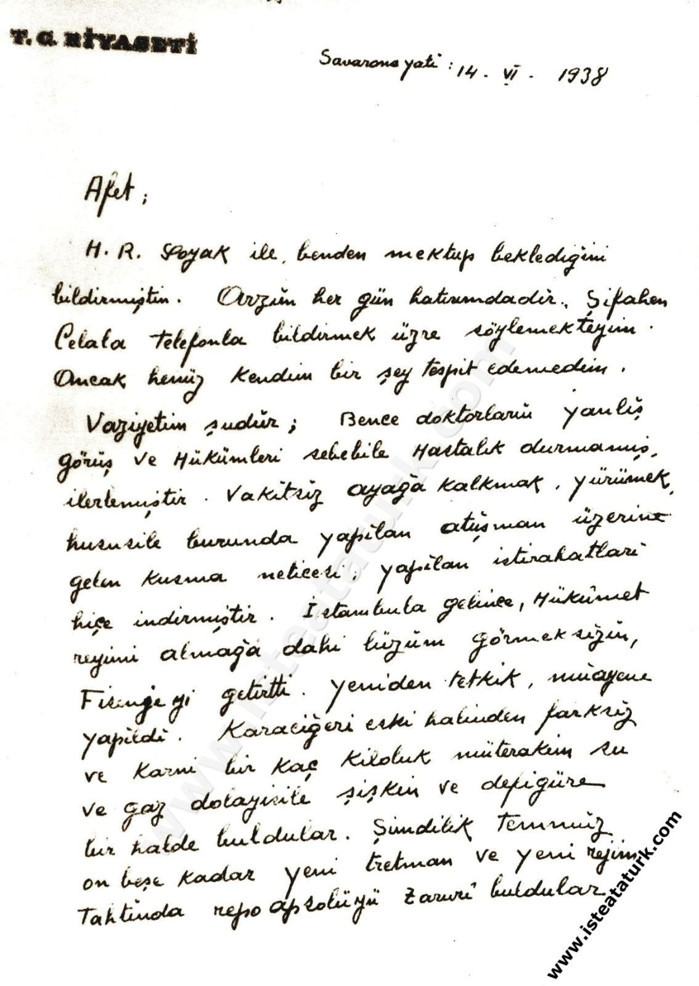 T. C. RİYASETİ
Savarona yatı: 14. VI. 1938
Afet;
H. R. Soyak ile, benden mektup beklediğini
bildirmiştin. Arzun her gün hatırımdadır. Şifahen
Celala telefonla bildirmek üzre söylemekteyim.
Ancak henüz kendim bir şey tespit edemedim.
Vaziyetim şudur; Bence doktorların yanlış
görüş ve Hükümleri sebebile Hastalık durmamış,
ilerlemiştir. Vakitsiz ayağa kalkmak, yürümek,
hususile burunda yapılan atuşman üzerine
gelen kusma neticesi, yapılan istirahatları
hiçe indirmiştir. İstanbula gelince, Hükûmet
reyimi almağa dahi lüzum görmeksizin,
Fisenje yi getirtti. Yeniden tetkik, muayene
yapıldı. Karaciğeri eski halinden farksız
ve Karnı bir kaç kiloluk müterakim su
ve gaz dolayısile şişkin ve defigüre
bir halde buldular. Şimdilik Temmuz
on beşe kadar yeni tretman ve yeni rejim
Tahtında repo apsolüyü zarurî buldular.
www.isteataturk.com
www.isteataturk.com